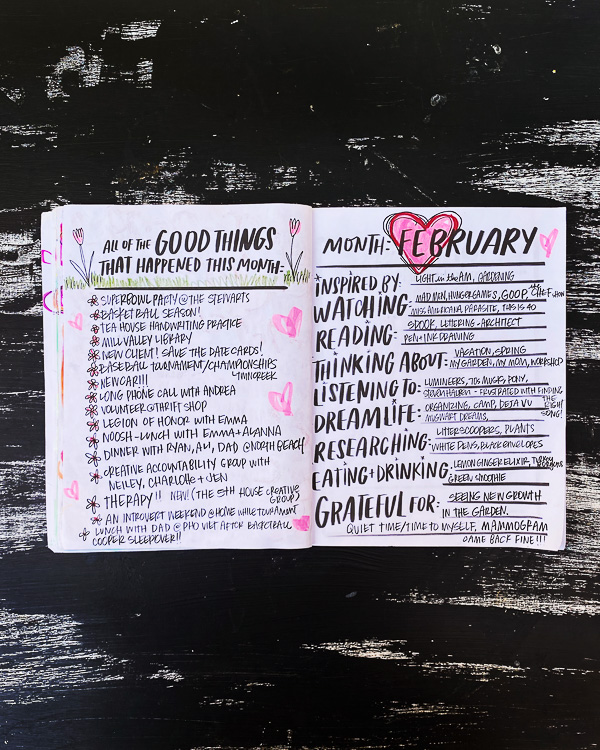 ALL OF THE GOOD THINGS
THAT HAPPENED THIS MONTH-
SUPERBOWL PARTY @ THE STEVARTS
BASKETBALL SEASON!
TEA HOUSE HANDWRITING PRACTICE
MILL VALLEY LIBRARY
NEW CLIENT! SAVE THE DATE CARDS!
BASEBALL TOURNAMENT/CHAMPIONSHIPS
NEW CAR!!!
LONG PHONE CALL WITH ANDREA
VOLUNTEER @ THRIFT SHOP
LEGION OF HONOR WITH EMMA
NOOSH-LUNCH WITH EMMA + ALANNA
DINNER WITH RYAN, ALI, DAD @ NORTH BEACH
CREATIVE ACCOUNTABILITY GROUP WITH
NEILEY, CHARLOTTE + JEN
THERAPY!! NEW (THE 5TH HOUSE CREATIVE
GROUP)
AN INTROVERT WEEKEND @ HOME WHILE TOURNAMENT
LUNCH WITH DAD @ PHO VIET AFTER BASKETBALL
COOPER SLEEPOVER!!
MONTH: FEBRUARY
INSPIRED BY: LIGHT in the AM, GARDENING
WATCHING: MAD MEN, HUNGER GAMES, GOOP, the CHEF show
MISS AMERICANA, PARASITE, THIS IS 40
READING: SPOOK, LETTERING-ARCHITECT
PEN + INK DRAWING
THINKING ABOUT: VACATION, SPRING
MY GARDEN, MY MOM, WORKSHOP
LISTENING TO: LUMINEERS, 70S MUSIC, PONY,
FRUSTRATED WITH FINDING THE RIGHT SONG!
DREAMLIFE: ORGANIZING, CAMP, DEJA VU
DREAMS,
RESEARCHING: LITTER SCOOPERS, PLANTS
WHITE PENS, BLACK ENVELOPES
EATING + DRINKING: LEMON GINGER ELIXIR, TURKEY
GREEN SMOOTHIE
GRATEFUL FOR: SEEING NEW GROWTH
IN THE GARDEN.
QUIET TIME/TIME TO MYSELF, MAMMOGRAM
CAME BACK FINE!!!